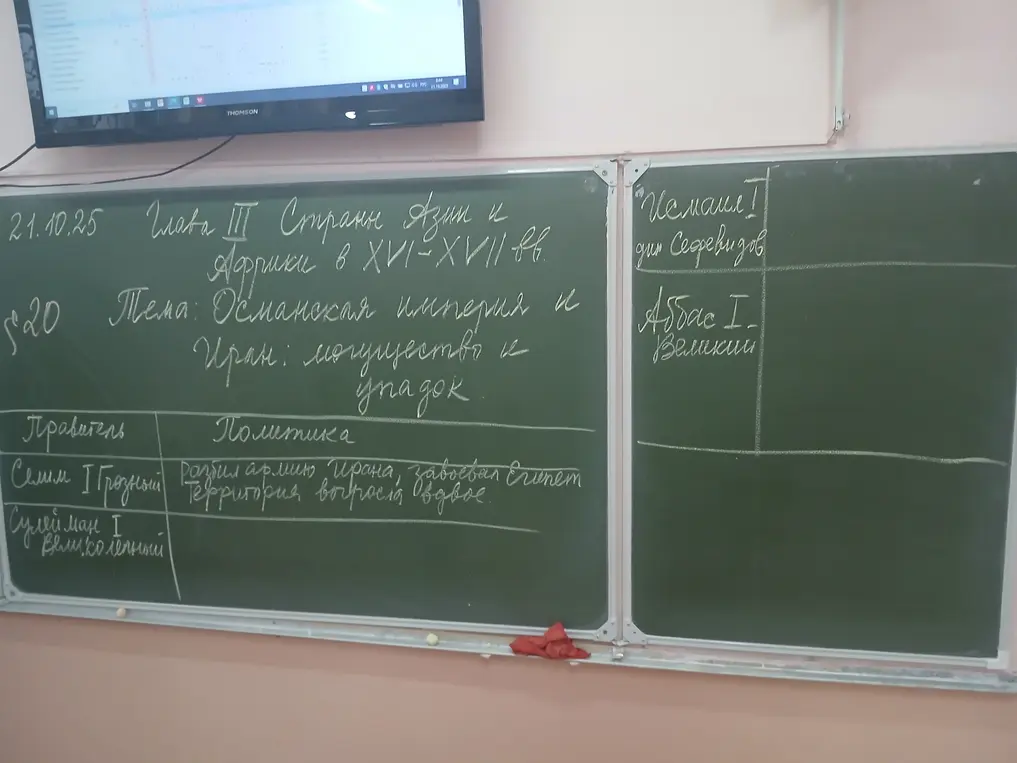 THOMSON
21.10.25 Глава III Страны Азии и
Африки в XVI-XVII вв.
§20 Тема: Османская империя и
Иран: могущество и
упадок
Правитель Политика
Селим I Грозный Разбил армию Ирана, завоевал Египет
Территория возросла вдвое.
Сулейман I
Великолепный
Исмаил I
дин Сефевидов
Аббас I-
Великий